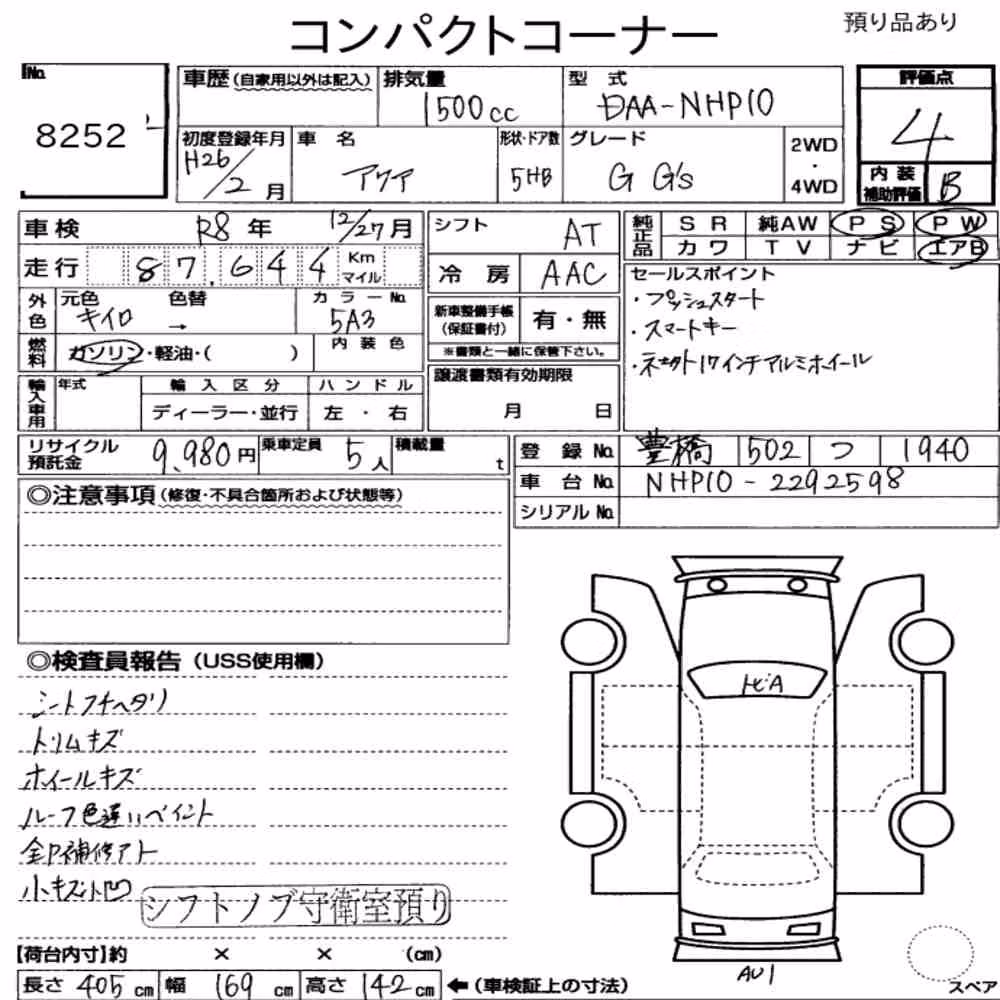 コンパクトコーナー
預り品あり
No.
8252
車歴(自家用以外は記入)
排気量
1500cc
型 式
DAA-NHP10
評価点
4
初度登録年月
H26/2月
車 名
アクア
形状・ドア数
5HB
グレード
G G's
2WD
・
4WD
内 装
補助評価
B
車検 R8年 12/27月
シフト AT
純正品
SR 純AW PS PW
カワ TV ナビ エアB
走行 87,644 Km
マイル
冷 房 AAC
セールスポイント
・プッシュスタート
・スマートキー
・ネオクト17インチアルミホイール
外色
元色 色替
キイロ →
カラーNo.
5A3
新車整備手帳
(保証書付)
有・無
※書類と一緒に保管下さい。
燃料
ガソリン・軽油・( )
内 装 色
輸入車用
年式
輸 入 区 分
ディーラー・並行
ハ ン ド ル
左 ・ 右
譲渡書類有効期限
月 日
リサイクル
預託金
9,980円
乗車定員
5人
積載量
t
登 録 No. 豊橋 502 つ 1940
車 台 No. NHP10-2292598
シリアル No.
◎注意事項(修復・不具合箇所および状態等)
◎検査員報告(USS使用欄)
シートフチヘタリ
トリムキズ
ホイールキズ
ルーフ色違いペイント
全P補修アト
小キズ凹
シフトノブ守衛室預り
トビA
AU1
スペア
【荷台内寸】約 × × (cm)
長さ 405 cm 幅 169 cm 高さ 142 cm ←(車検証上の寸法)